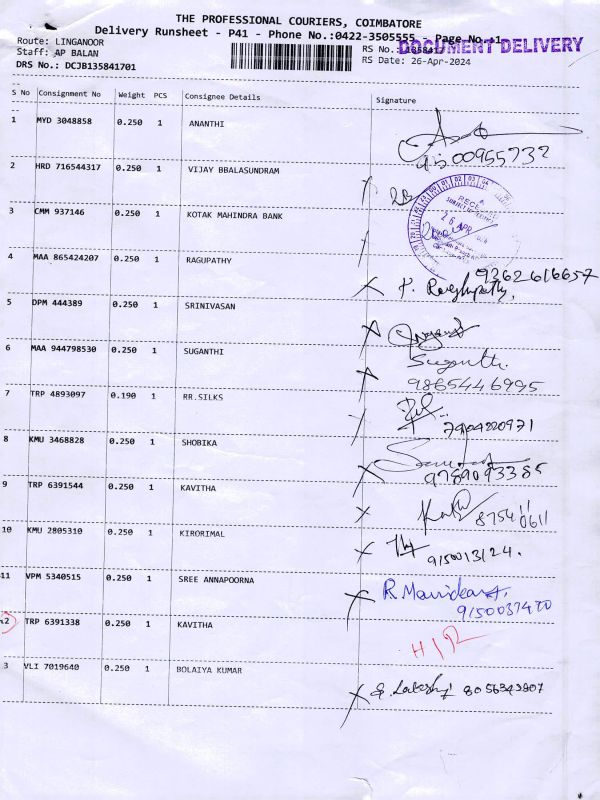 THE PROFESSIONAL COURIERS, COIMBATORE
Delivery Runsheet - P41 - Phone No.:0422-3505555 - Page No.:1
Route: LINGANOOR
Staff: AP BALAN
DRS No.: DCJB135841701
RS No.:
DOCUMENT DELIVERY
RS Date: 26-Apr-2024
S No Consignment No Weight PCS Consignee Details Signature
1 MYD 3048858 0.250 1 ANANTHI
2 HRD 716544317 0.250 1 VIJAY BBALASUNDRAM
3 CMM 937146 0.250 1 KOTAK MAHINDRA BANK
26 APR
4 MAA 865424207 0.250 1 RAGUPATHY
9362616657
5 DPM 444389 0.250 1 SRINIVASAN
6 MAA 944798530 0.250 1 SUGANTHI
Suganthi
9865446995
7 TRP 4893097 0.190 1 RR.SILKS
8 KMU 3468828 0.250 1 SHOBIKA
9789093385
9 TRP 6391544 0.250 1 KAVITHA
10 KMU 2805310 0.250 1 KIRORIMAL
11 VPM 5340515 0.250 1 SREE ANNAPOORNA
12 TRP 6391338 0.250 1 KAVITHA
3 VLI 7019640 0.250 1 BOLAIYA KUMAR
8056343807